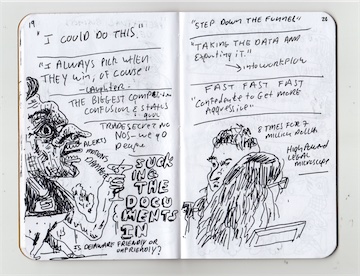 19
"I COULD DO THIS."
"I ALWAYS PICK WHEN
THEY WIN, OF COURSE"
- LAUGHTER -
THE BIGGEST
CONFUSION & STATUS
TRADE SECRET NO
NOS - we go
Deeper
ALERTS
SUCK
ING
THE
DOCU
MENTS
IN
IS DELAWARE FRIENDLY OR
UNFRIENDLY?
20
"STEP DOWN THE FUNNEL"
"TAKING THE DATA AND
Exporting it."
→ into workflow
FAST FAST FAST
to Get MORE
Aggressive"
8 TIMES FOR 7
Million Dollars
High Powered
LEGAL
microscope